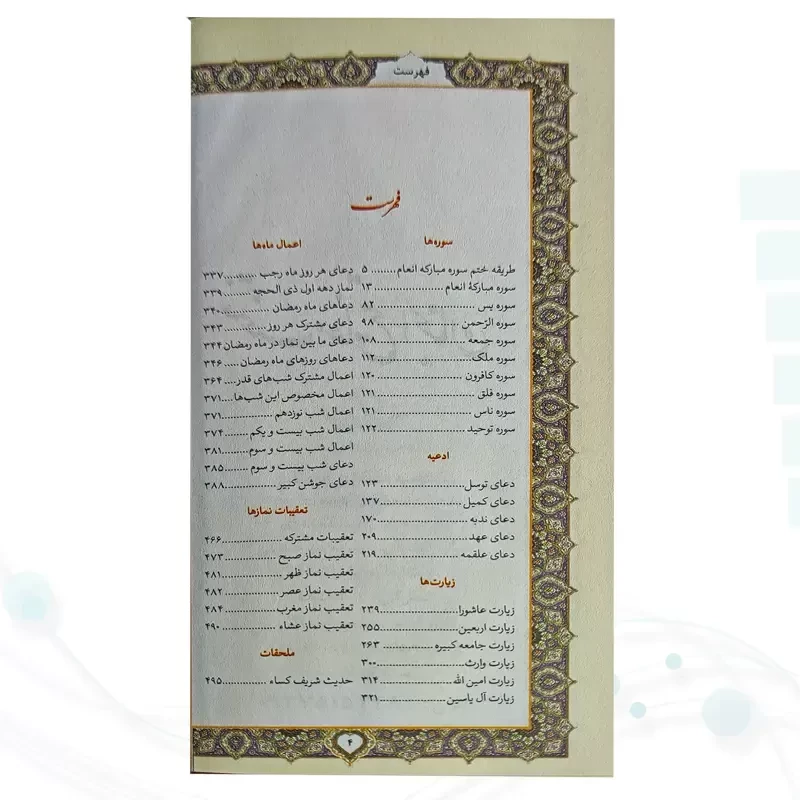 فهرست
فهرست
سوره‌ها
طریقه ختم سوره مبارکه انعام........ ۵
سوره مبارکهٔ انعام...................... ۱۳
سوره یس ................................ ۸۲
سوره الرّحمن .......................... ۹۸
سوره جمعه ........................... ۱۰۸
سوره ملک............................. ۱۱۲
سوره کافرون ......................... ۱۲۰
سوره فلق .............................. ۱۲۱
سوره ناس ............................. ۱۲۱
سوره توحید........................... ۱۲۲
ادعیه
دعای توسل........................... ۱۲۳
دعای کمیل........................... ۱۳۷
دعای ندبه ............................. ۱۷۰
دعای عهد ............................. ۲۰۹
دعای علقمه .......................... ۲۱۹
زیارت‌ها
زیارت عاشورا......................... ۲۳۹
زیارت اربعین.......................... ۲۵۵
زیارت جامعه کبیره ................ ۲۶۳
زیارت وارث........................... ۳۰۰
زیارت امین الله ...................... ۳۱۴
زیارت آل یاسین..................... ۳۲۱
اعمال ماه‌ها
دعای هر روز ماه رجب ........... ۳۳۷
نماز دهه اول ذی الحجه ......... ۳۳۹
دعاهای ماه رمضان ............... ۳۴۰
دعای مشترک هر روز............. ۳۴۳
دعای ما بین نماز در ماه رمضان ۳۴۴
دعاهای روزهای ماه رمضان ..... ۳۴۶
اعمال مشترک شب‌های قدر.... ۳۶۴
اعمال مخصوص این شب‌ها.... ۳۷۱
اعمال شب نوزدهم ................ ۳۷۱
اعمال شب بیست و یکم ........ ۳۷۴
اعمال شب بیست و سوم ....... ۳۸۱
دعای شب بیست و سوم ........ ۳۸۵
دعای جوشن کبیر ................. ۳۸۸
تعقیبات نمازها
تعقیبات مشترکه ................... ۴۶۶
تعقیب نماز صبح ................... ۴۷۳
تعقیب نماز ظهر .................... ۴۸۱
تعقیب نماز عصر .................... ۴۸۲
تعقیب نماز مغرب.................. ۴۸۴
تعقیب نماز عشاء................... ۴۹۰
ملحقات
حدیث شریف کساء ............... ۴۹۵
۴